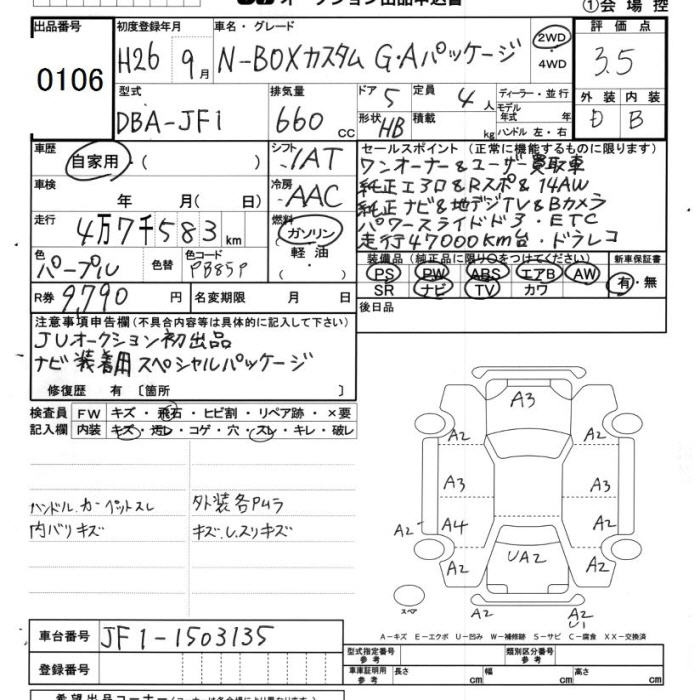 オークション出品申込書
①会場控
出品番号
0106
初度登録年月
H26 9月
車名・グレード
N-BOXカスタム G・Aパッケージ
2WD
4WD
評価点
3.5
型式
DBA-JF1
排気量
660 cc
ドア 5
形状 HB
定員 4人
積載 kg
ディーラー・並行
モデル年式 年
ハンドル 左・右
外装 内装
D B
車歴
自家用・( )
シフト
IAT
車検
年 月( 日)
冷房
AAC
走行
4万7千583km
燃料
ガソリン
軽油
・
色
パープル
色替
色コード
PB85P
R券 9,790 円
名変期限 月 日
セールスポイント (正常に機能するものに限ります)
ワンオーナー&ユーザー買取車
純正エアロ&Rスポ&14AW
純正ナビ&地デジTV&Bカメラ
パワースライドド3・ETC
走行47000km台・ドラレコ
装備品(純正品に限り○をつけてください)
PS PW ABS エアB AW
SR ナビ TV カワ
新車保証書
有・無
後日品
注意事項申告欄(不具合内容等は具体的に記入して下さい)
JUオークション初出品
ナビ装着用スペシャルパッケージ
修復歴 有 〔箇所 〕
検査員
記入欄
FW キズ・飛石・ヒビ割・リペア跡・×要
内装 キズ・汚レ・コゲ・穴・スレ・キレ・破レ
ハンドル.カーペットスレ
内バリキズ
外装各PUラ
キズ.U.スリキズ
A3
A2 A2
A3 A3
A2 A4 A2
A2 UA2 A2
スペア
A2 A2
U1
A-キズ E-エクボ U-凹み W-補修跡 S-サビ C-腐食 XX-交換済
車台番号 JF1-1503135
登録番号
型式指定番号
参考
類別区分番号
参考
車庫証明用
参考
長さ cm 幅 cm 高さ cm
希望出品コーナー